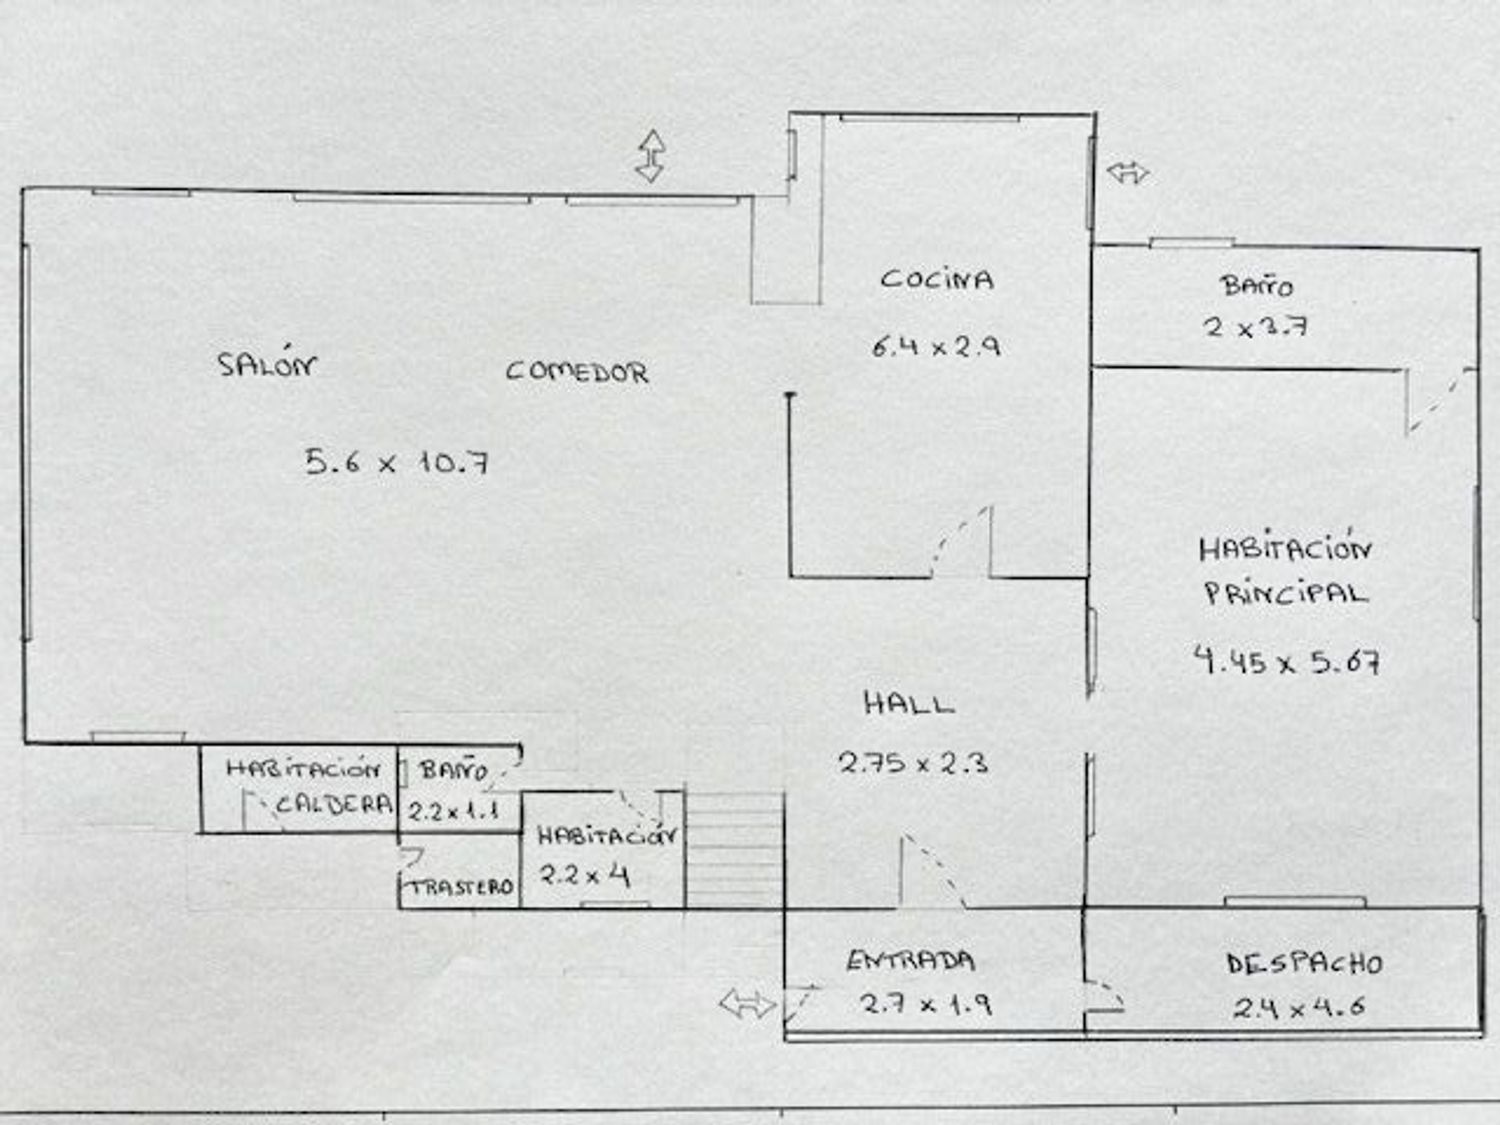 COCINA
6.4 x 2.9
BAÑO
2 x 3.7
SALÓN
COMEDOR
5.6 x 10.7
HABITACIÓN
PRINCIPAL
4.45 x 5.67
HALL
2.75 x 2.3
HABITACIÓN
CALDERA
BAÑO
2.2 x 1.1
HABITACIÓN
2.2 x 4
TRASTERO
ENTRADA
2.7 x 1.9
DESPACHO
2.4 x 4.6